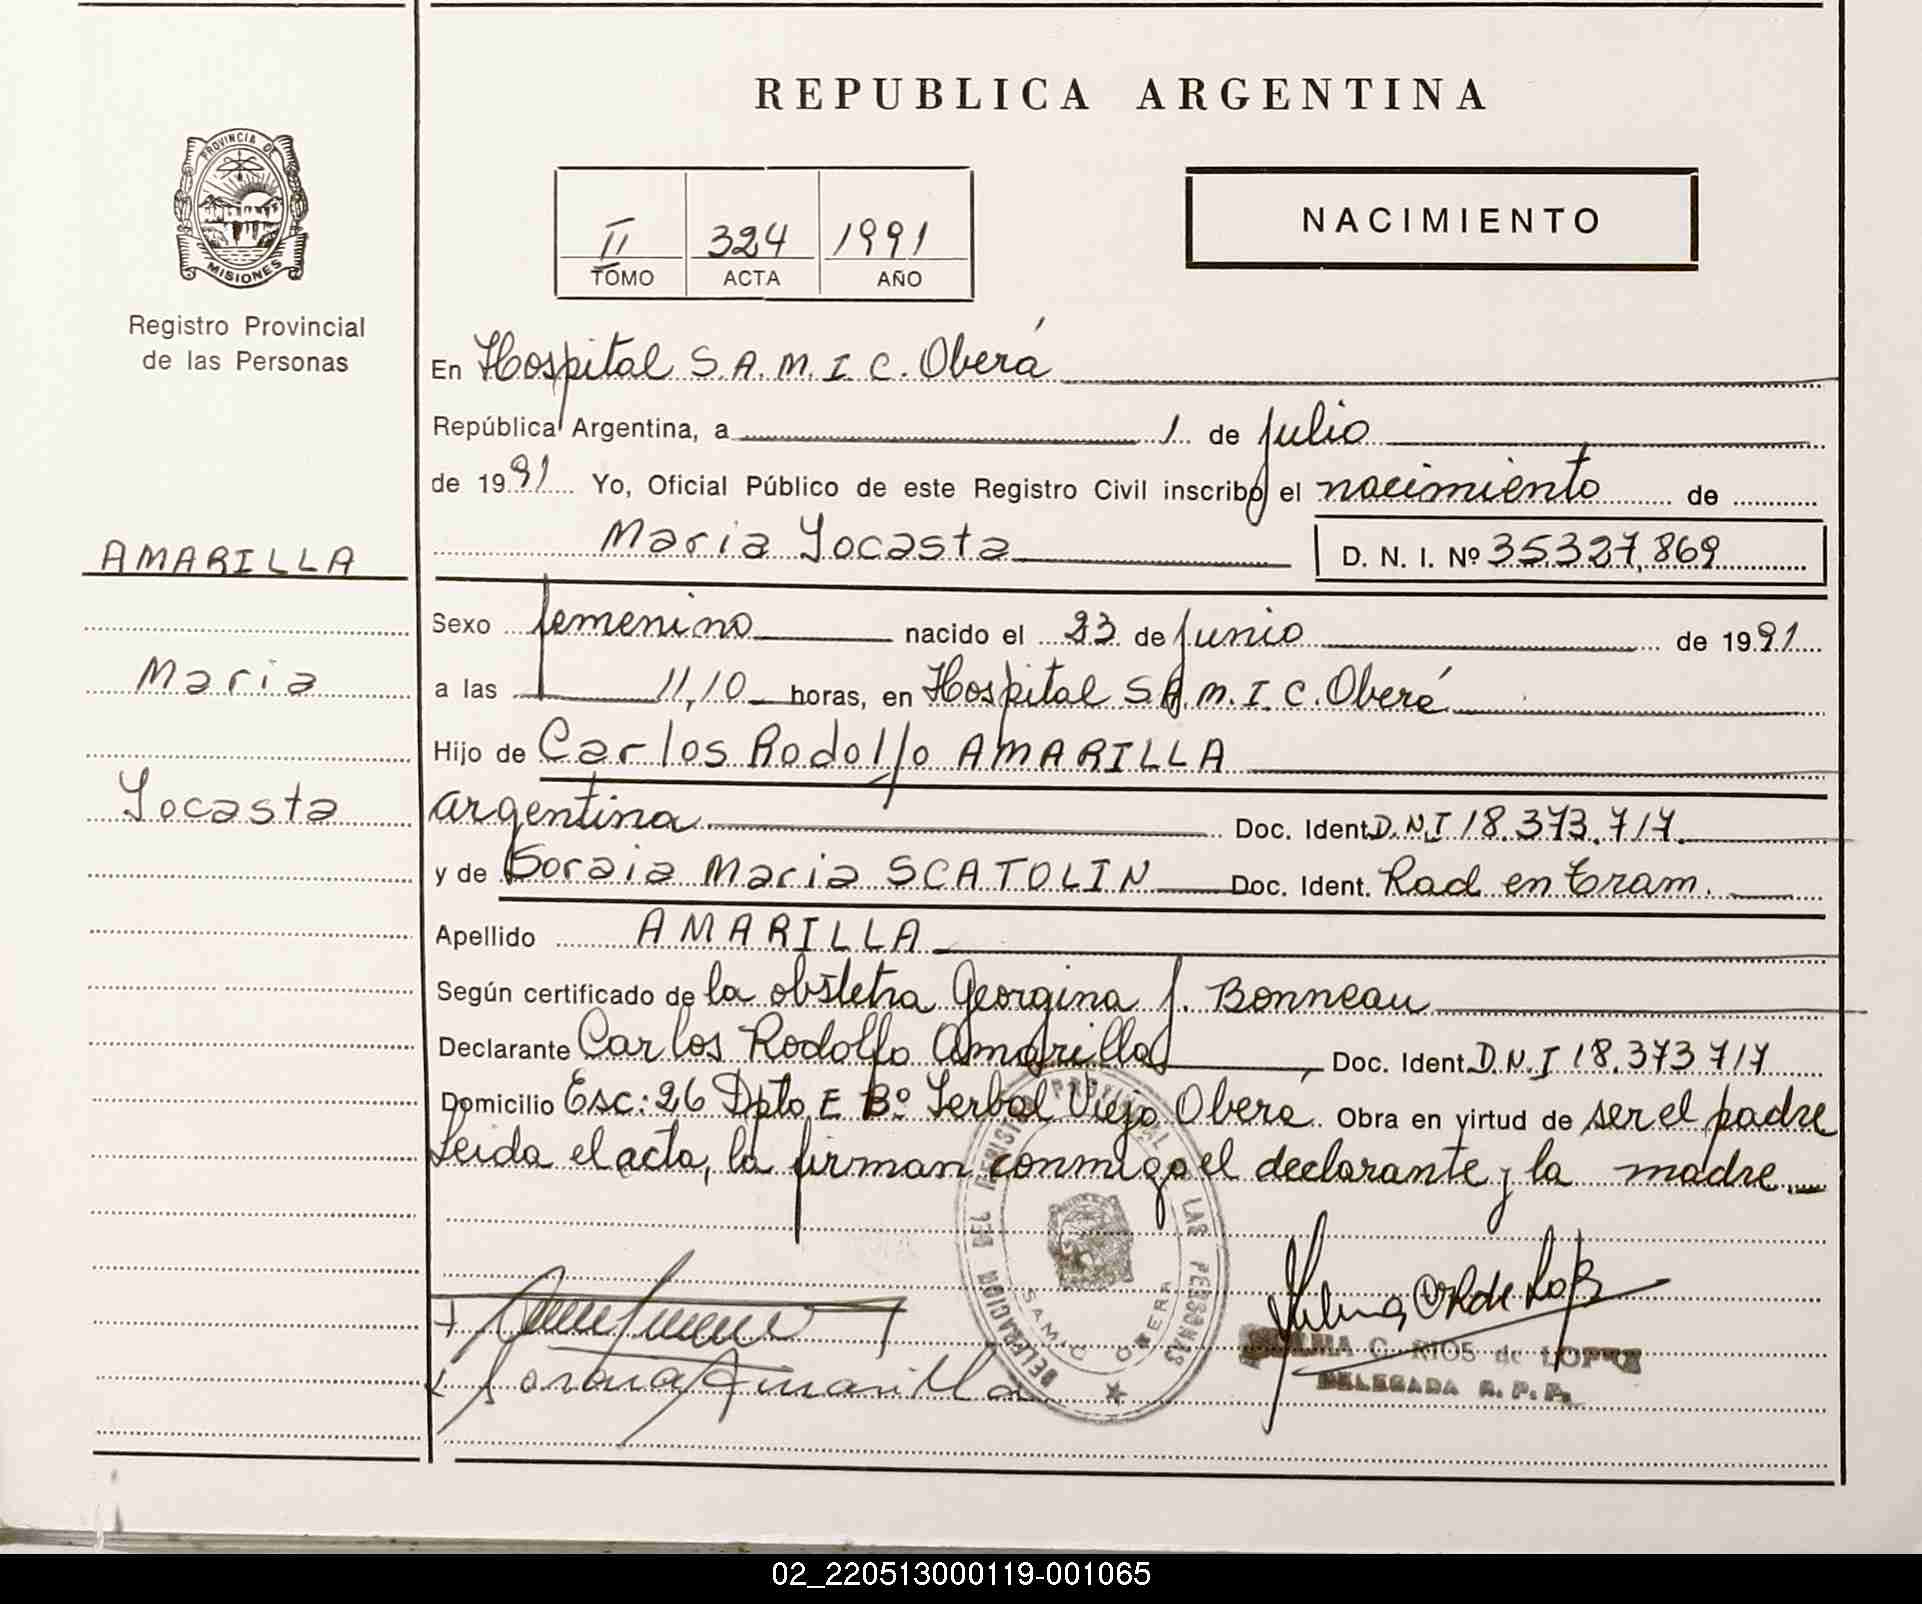 REPUBLICA ARGENTINA
PROVINCIA DE
MISIONES
Registro Provincial
de las Personas
II 324 1991
TOMO ACTA AÑO
NACIMIENTO
En Hospital S.A.M.I.C. Oberá
República Argentina, a 1 de Julio
de 1991 Yo, Oficial Público de este Registro Civil inscribo el nacimiento de
Maria Yocasta D. N. I. Nº 35.327,869
AMARILLA
Maria
Yocasta
Sexo femenino nacido el 23 de Junio de 1991
a las 11,10 horas, en Hospital S.A.M.I.C. Oberá
Hijo de Carlos Rodolfo AMARILLA
argentina Doc. Ident. D.N.I 18.373.717
y de Soraia Maria SCATOLIN Doc. Ident. Rad en Tram.
Apellido AMARILLA
Según certificado de la obstetra Georgina J. Bonneau
Declarante Carlos Rodolfo Amarilla Doc. Ident. D.N.I 18.373 717
Domicilio Esc: 26 Dpto E Bº Yerbal Viejo Oberá. Obra en virtud de ser el padre
Leida el acta, la firman conmigo el declarante y la madre.
DELEGACION DEL REGISTRO PROVINCIAL DE LAS PERSONAS
SAMIC OBERA
Soraia Amarilla
C. RIOS de LOPEZ
DELEGADA R. P. P.
02_220513000119-001065